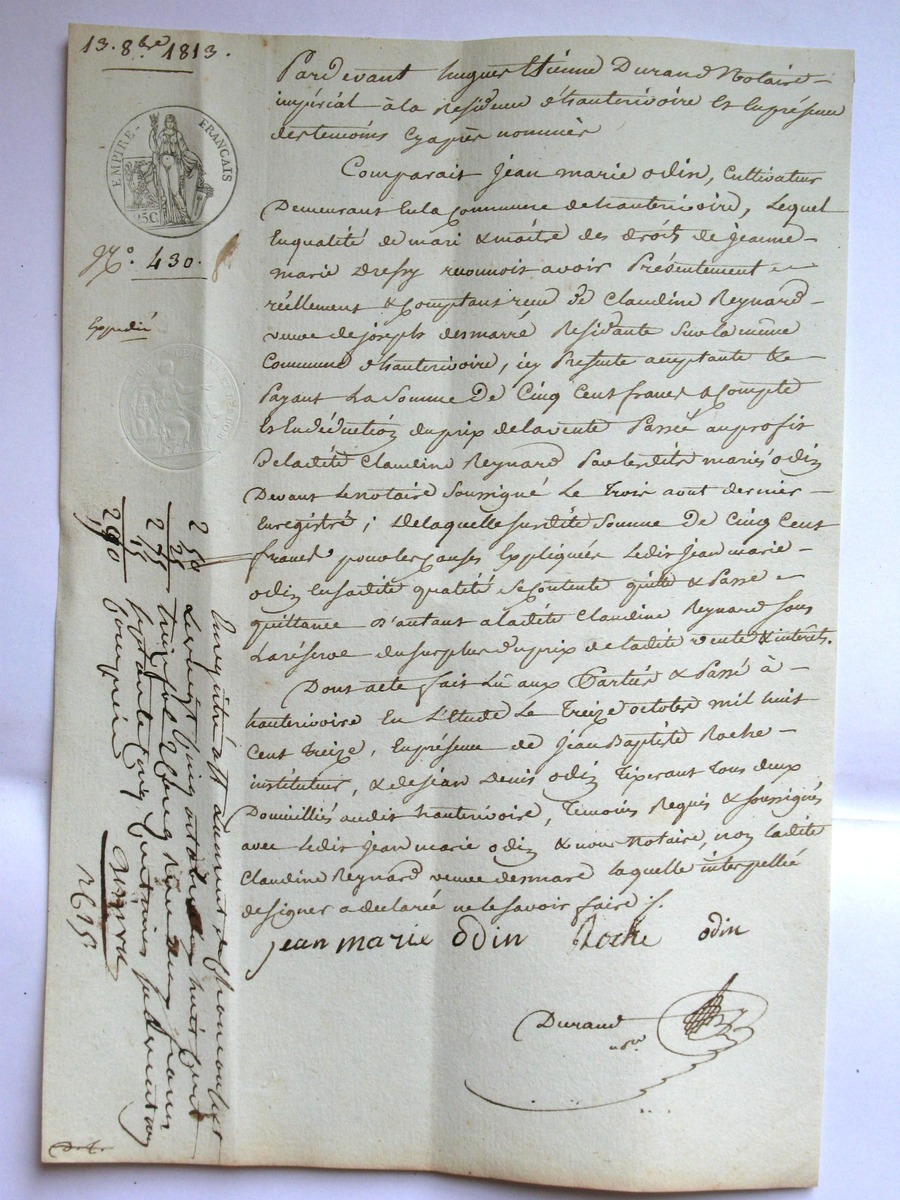 13. 8bre 1813.
EMPIRE FRANÇAIS
25C
N.o 430.
Expedié
Pardevant hugues Etienne Durand Notaire
impérial à la Residence d'hauterivoire Et En présence
des temoins Cyaprès nommés
Comparait Jean marie odin, Cultivateur
Demeurant En la Commune de hauterivoire, Lequel
En qualité de mari & maitre des droits de jeanne
marie Dressy reconnois avoir Présentement
réellement & Comptant reçu de Claudine Reynard
veuve de joseph desmarré Residante sur la même
Commune d'hauterivoire, icy Presente acceptante &
Payant La Somme De Cinq Cent francs a Compte
Et En déduction du prix de la vente Passée au profit
De ladite Claudine Reynard Par lesdits mariés odin
Devant Le notaire Soussigné Le Trois aout dernier
Enregistré; De laquelle susdite Somme De Cinq Cent
francs pour les Causes Expliquées Ledit Jean marie
odin En sadite qualité se Contente quitte & Passe
quittance D'autant a ladite Claudine Reynard sous
La réserve du surplus du prix de ladite vente & intérêts.
Dont acte fait Lû aux Parties & Passé à
hauterivoire En L'Etude Le Treize octobre mil huit
Cent Treize, En présence de Jean Baptiste Roche
instituteur, & de jean Denis odin Tixerant Tous deux
Domiciliés audit hauterivoire, Temoins Requis & soussignés
avec Ledit jean marie odin & nous Notaire, non ladite
Claudine Reynard veuve desmaré laquelle interpellée
de signer a declaré ne le savoir faire ./.
jean marie odin Roche odin
Durand
nore
2 50
25
2 75
15
2 90
Enregistré à St Laurent de Chamousset
Le vingt Cinq octobre mil huit Cent
treize fol.
reçu deux francs
soixante quinze centimes